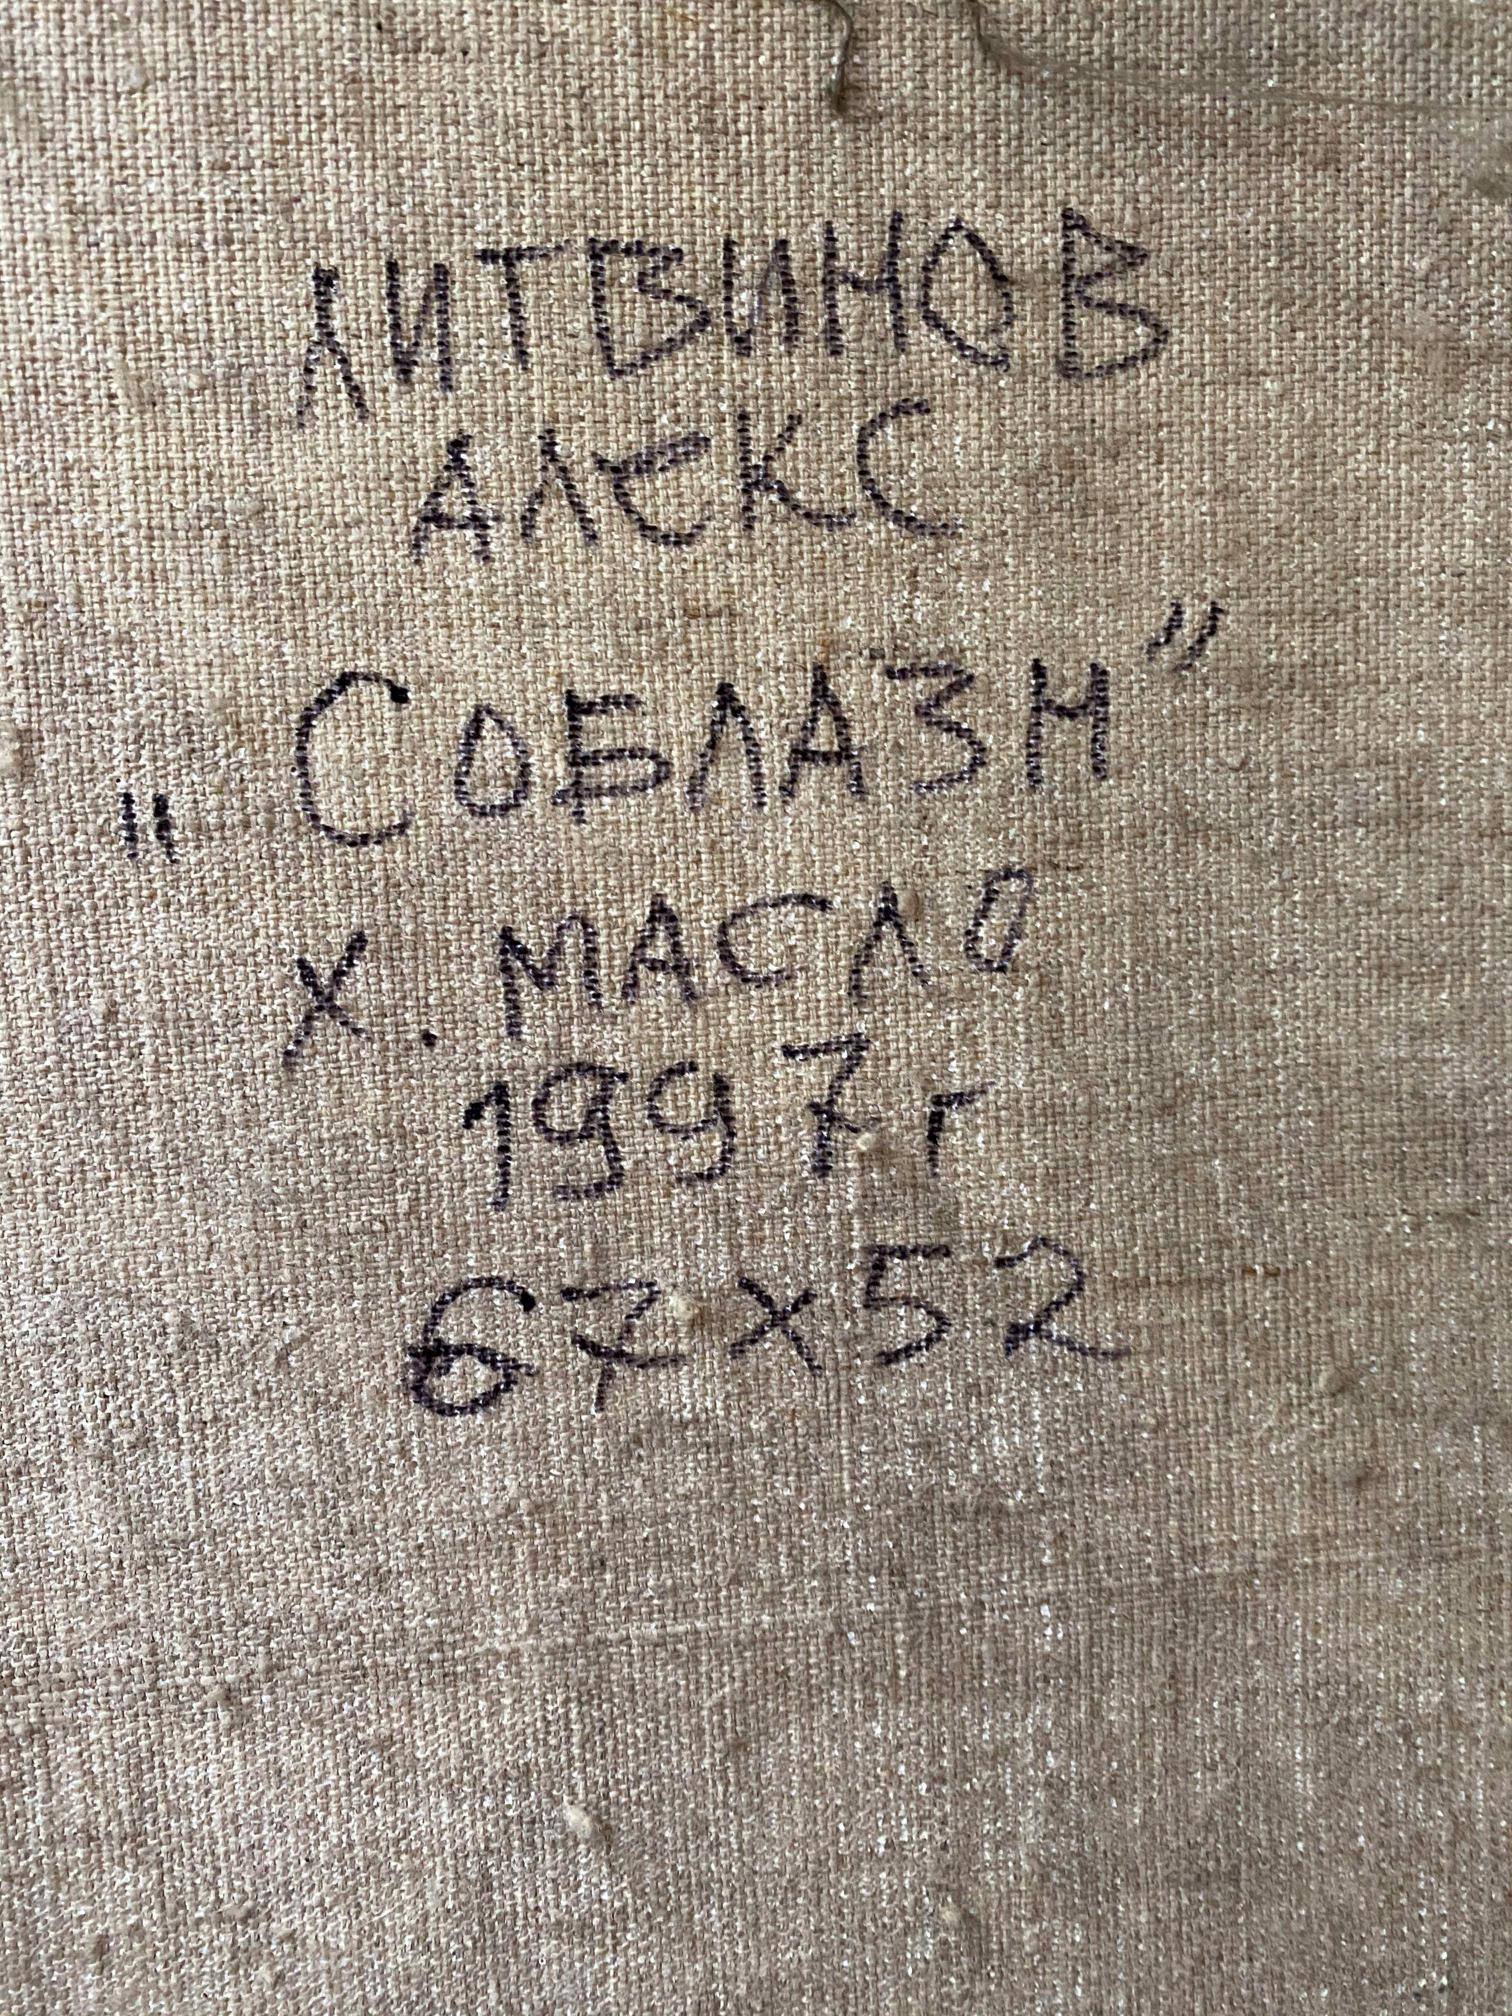 ЛИТВИНОВ
АЛЕКС
„СОБЛАЗН”
Х. МАСЛО
1997г
67х52